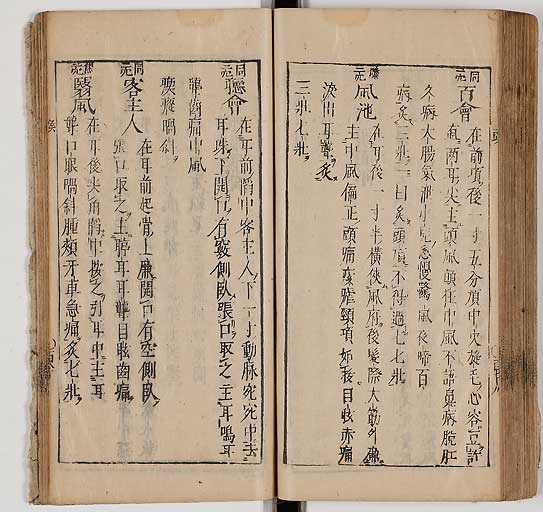 同
元
百會
在前頂後一寸五分頂中央旋毛心容豆許
直兩耳尖主頭風頭
中風不語鼻病脫肛
久病大腸氣泄小兒急慢驚風夜啼百
病灸三壯一曰灸頭頂不得過七七壯
元
風池
在耳後一寸半橫俠風府後髮際大筋外廉
主中風偏正頭痛痎瘧頸項如拔目眩赤痛
淚出耳聾灸
三壯七壯
同
元
聽會
在耳前陷中客主人下一寸動脉宛宛中去
耳珠下開口有竅側臥張口取之主耳鳴耳
聾齒痛中風
喎斜
同
元
客主人
在耳前起骨上廉開口有空側臥
張口取之主聤耳耳聾目眩齒痛
元
翳風
在耳後尖角陷中按之引耳中主耳
聾口眼喎斜腫頰牙車急痛灸七壯